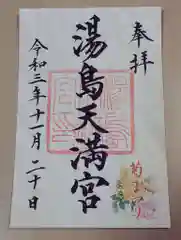 奉拝
湯島天満宮
令和三年十一月二十日